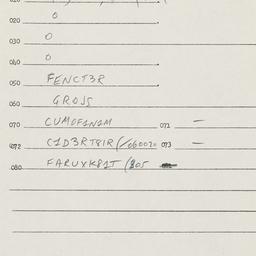 020 0
030 0
040 0
050 FENCT3R
060 GROJS
070 CUMOF1N1M 071 —
072 C1D3RT8IR(/060020 073 —
080 FARUXK81T (805